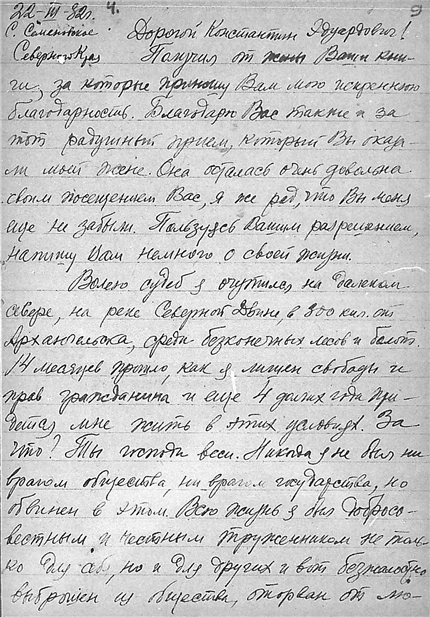 22-III-32г. 4. 9
с. Семеновское Дорогой Константин Эдуардович!
Северного Края Получил от жены Ваши кни-
ги, за которые приношу Вам мою искреннюю
благодарность. Благодарю Вас также и за
тот радушный прием, который Вы оказа-
ли моей жене. Она осталась очень довольна
своим посещением Вас, я же рад, что Вы меня
еще не забыли. Пользуясь Вашим разрешением,
напишу Вам немного о своей жизни.
Волею судеб я очутился на далеком
севере, на реке Северной Двине, в 300 кил. от
Архангельска, среди безконечных лесов и болот.
14 месяцев прошло, как я лишен свободы и
прав гражданина и еще 4 долгих года при-
дется мне жить в этих условиях. За
что? Ты господи веси. Никогда я не был ни
врагом общества, ни врагом государства, но
обвинен в этом. Всю жизнь я был добросо-
вестным и честным труженником не толь-
ко для себя, но и для других и вот безжалостно
выброшен из общества, оторван от лю-